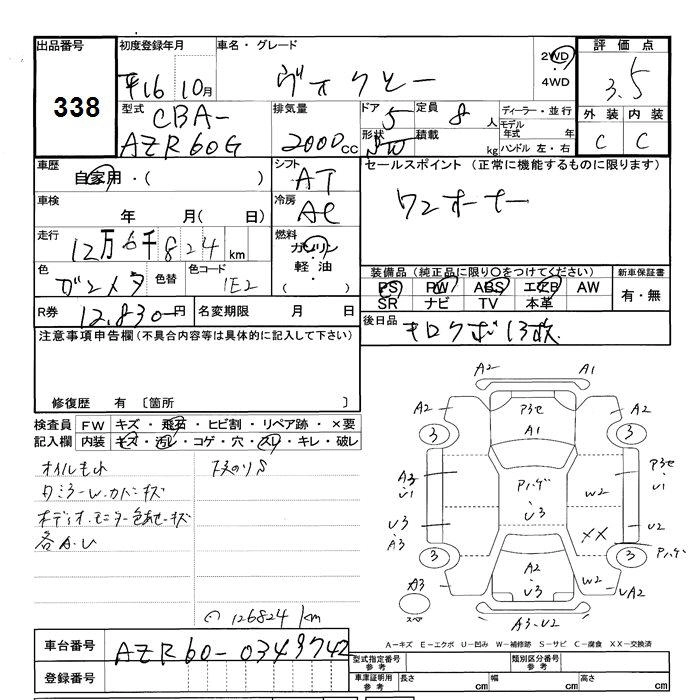 出品番号 初度登録年月 車名・グレード 評価点
338
平16 10月 ヴォクシー 2WD 4WD 3.5
型式 CBA- AZR60G
排気量 2000cc
ドア 5 定員 8人 ディーラー・並行
モデル年式 年
形状 SW 積載 kg ハンドル 左・右
外装 内装
C C
車歴 自家用・( )
シフト AT
セールスポイント (正常に機能するものに限ります)
ワンオーナー
車検 年 月( 日)
冷房 AC
走行 12万6千824km
燃料 ガソリン 軽油
色 ガンメタ 色替 色コード 1E2
装備品(純正品に限り○をつけてください) 新車保証書
PS PW ABS エアB AW 有・無
SR ナビ TV 本革
R券 12,830円 名変期限 月 日
後日品 キロクボ13枚
注意事項申告欄(不具合内容等は具体的に記入して下さい)
修復歴 有 〔箇所 〕
検査員 FW キズ・飛石・ヒビ割・リペア跡・×要
記入欄 内装 キズ・汚レ・コゲ・穴・スレ・キレ・破レ
オイルもれ
各A.U
126824km
A2 A1
A2 A3セ A2
3 A1 3
A3 U1 Pハゲ W2 U1
U3 A3 U3 XX U2
3 A2 U3 W2 3 Pハゲ
A3 UA2
スペア A3・U2
A-キズ E-エクボ U-凹み W-補修跡 S-サビ C-腐食 XX-交換済
車台番号 AZR60-0349742
登録番号
型式指定番号 参考 類別区分番号 参考
車庫証明用 参考 長さ cm 幅 cm 高さ cm